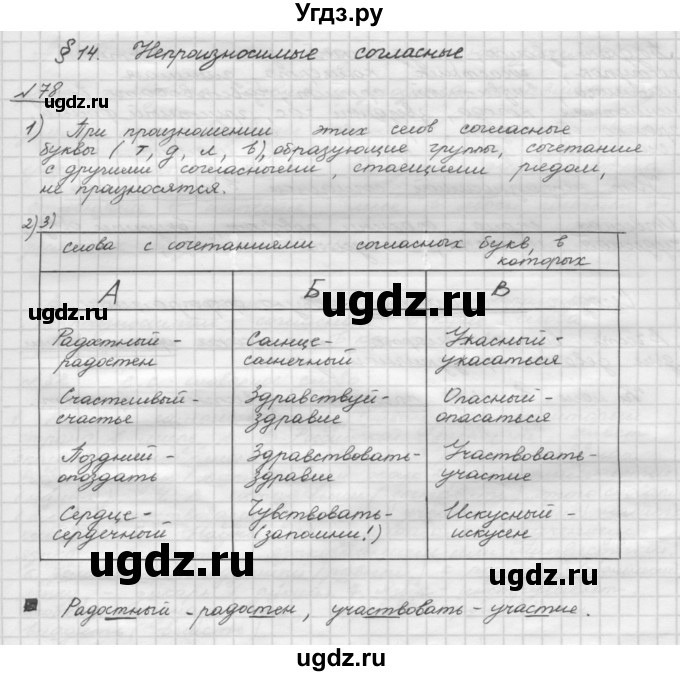 Угдз.ру
§ 14. Непроизносимые согласные
№ 78
ugdz.ru
ugdz.ru
1) При произношении этих слов согласные
буквы ( т, д, л, в), образующие группы, сочетания
с другими согласными, стоящими рядом,
не произносятся.
2) 3)
ugdz.ru
слова с сочетаниями согласных букв, в
которых
А Б В
ugdz.ru ugdz.ru
Радостный- Солнце- Ужасный-
радостен солнечный ужасаться
Счастливый- Здравствуй- Опасный-
счастье здравие опасаться
ugdz.ru
Поздний- Здравствовать- Участвовать-
опоздать здравие участие
Сердце- Чувствовать- Искусный-
сердечный (запомни!) искусен
ugdz.ru ugdz.ru
Радостный - радостен, участвовать - участие.
ugdz.ru